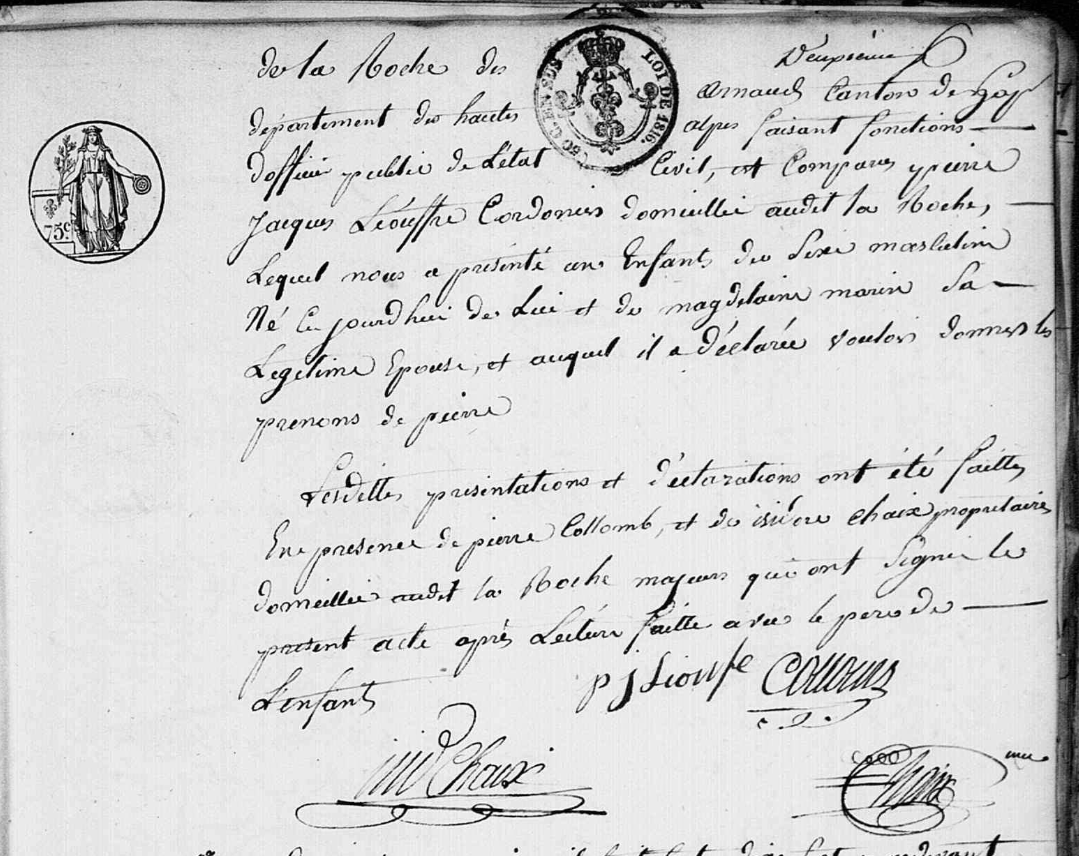 Deuxième
de la Roche des arnauds Canton de Gap
50 C. EN SUS LOI DE 1816.
département des hautes alpes faisant fonctions
d'officier public de L'état Civil, est Comparu pierre
75c.
Jacques Léouffre Cordonier domicillié audit la Roche,
Lequel nous a présenté un Enfants du Sexe masculin
Né Ce jourdhui de Lui et de magdelaine marin Sa
Legitime Epouse, et auquel il a déclarée vouloir donner les
prenoms de pierre
Lesdittes présentations et déclarations ont été faittes
En presence de pierre Collomb, et de isidore chaix propriétaires
domicilliés audit la Roche majeurs qui ont Signé le
présent acte après Lecture faitte avec le pere de
L'enfant
pj Liouffe
Chaix
Chaix mre